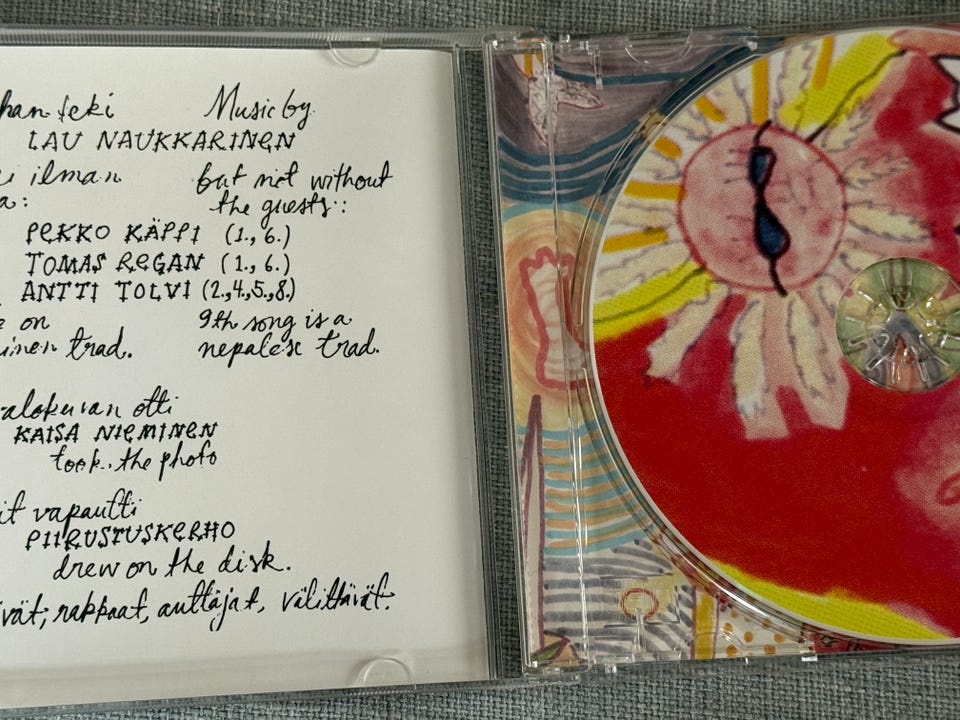 han teki Music by
LAU NAUKKARINEN
ilman but not without
a: the guests::
PEKKO KÄPPI (1., 6.)
TOMAS REGAN (1., 6.)
ANTTI TOLVI (2.,4.,5.,8.)
on 9th song is a
inen trad. nepalese trad.
alokuvan otti
KAISA NIEMINEN
took the photo
it vapautti
PIIRUSTUSKERHO
drew on the disk.
vät, rakkaat, auttajat, välittävät.